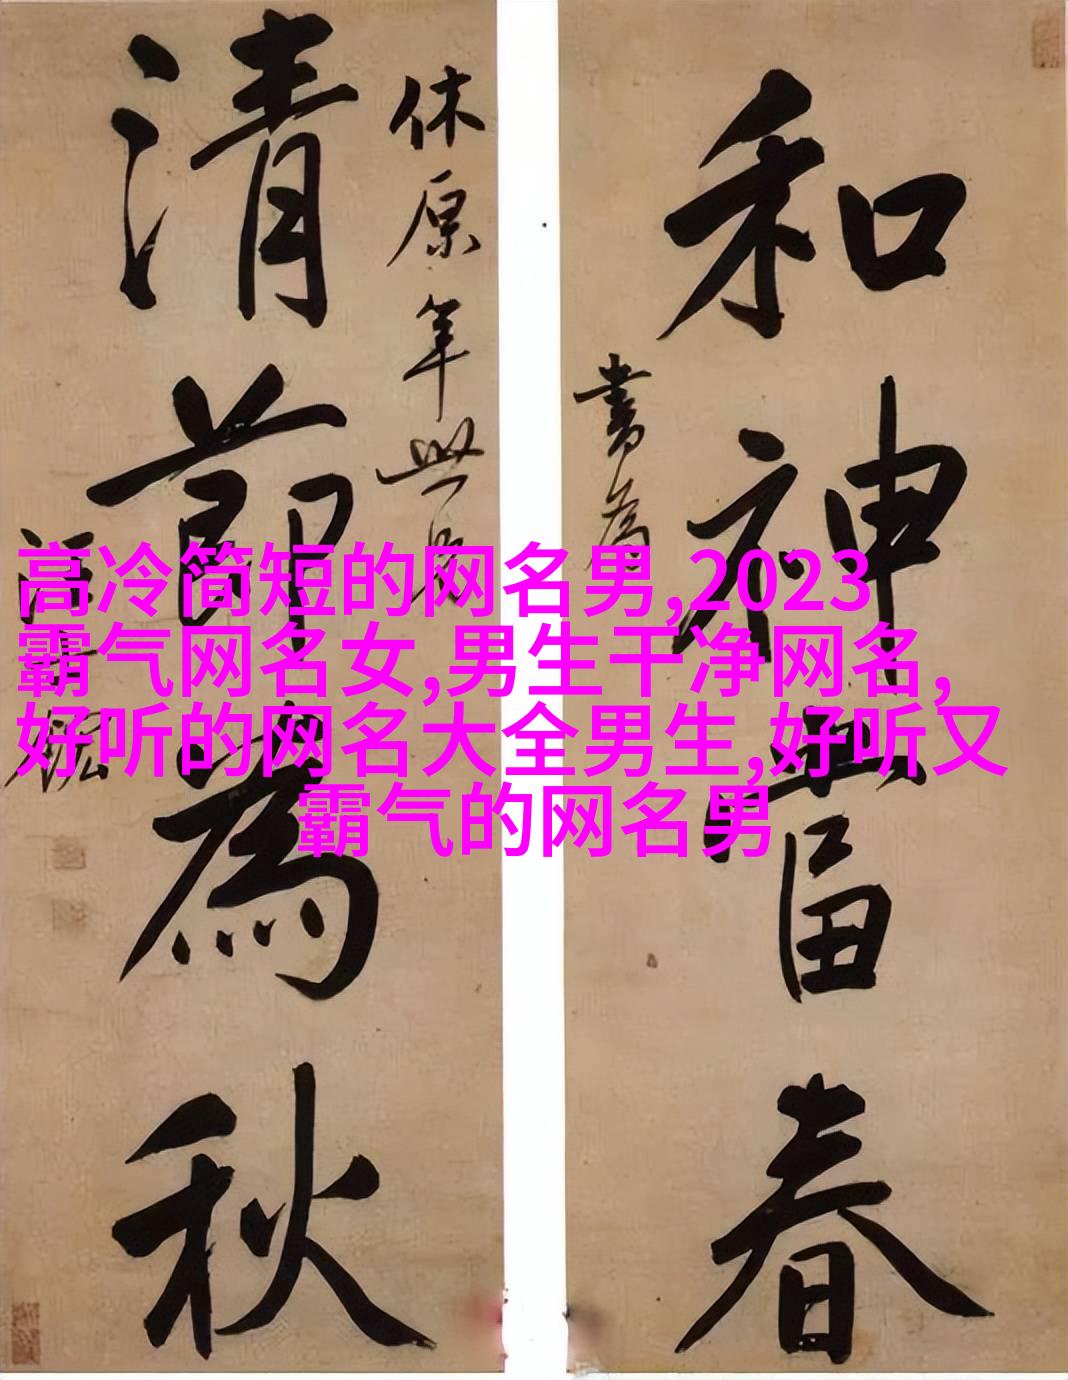 和神當春
書為
休原年世兄
清節為秋
高冷简短的网名男,2023
霸气网名女,男生干净网名,
好听的网名大全男生,好听又
霸气的网名男